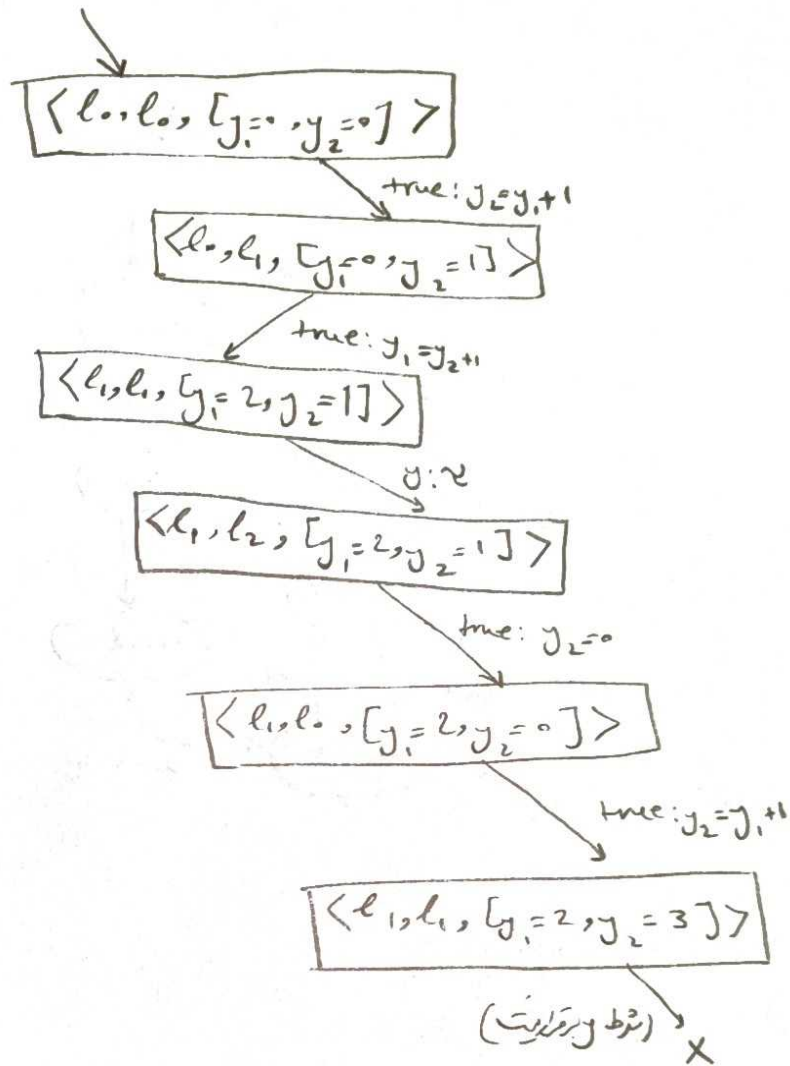 <l₀, l₀, [y₁=0, y₂=0]>
true: y₂=y₁+1
<l₀, l₁, [y₁=0, y₂=1]>
true: y₁=y₂+1
<l₁, l₁, [y₁=2, y₂=1]>
<l₁, l₂, [y₁=2, y₂=1]>
true: y₂=0
<l₁, l₀, [y₁=2, y₂=0]>
true: y₂=y₁+1
<l₁, l₁, [y₁=2, y₂=3]>
(شرط y برقرار نیست)
X